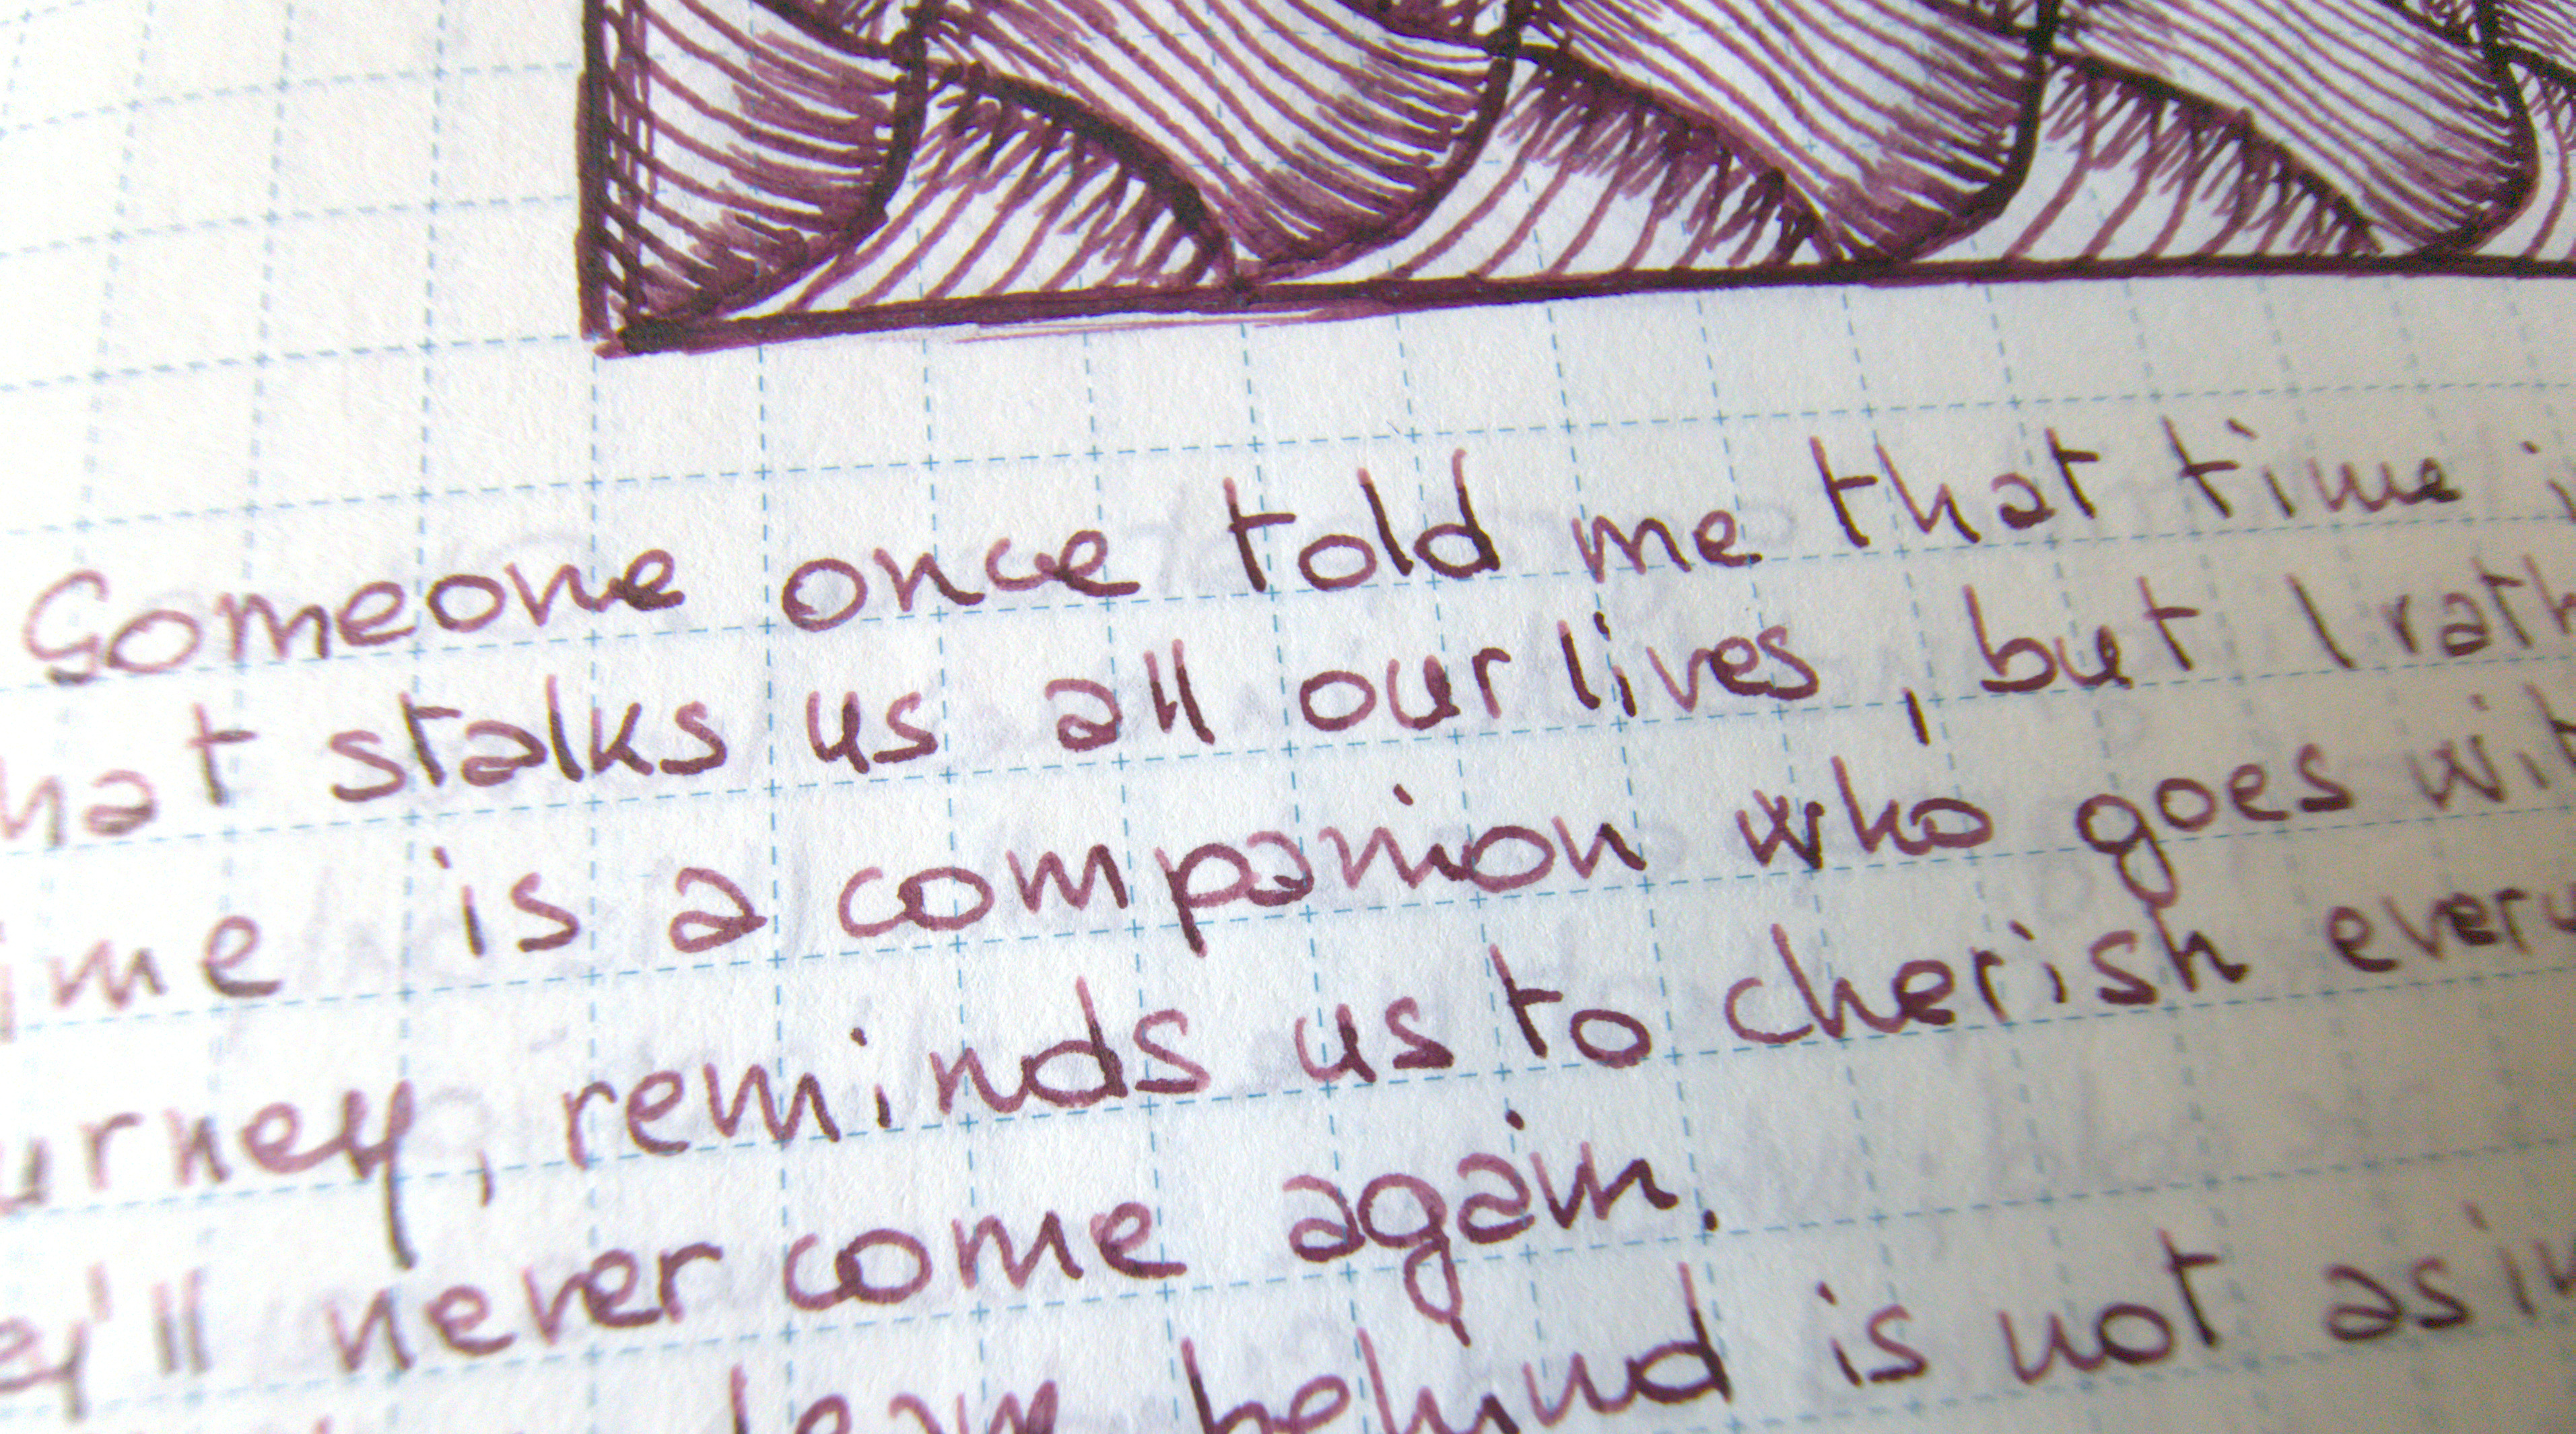 Someone once told me that time i
hat stalks us all our lives, but I rath
ime is a companion who goes wit
urney, reminds us to cherish every
ey'll never come again.
behind is not as im